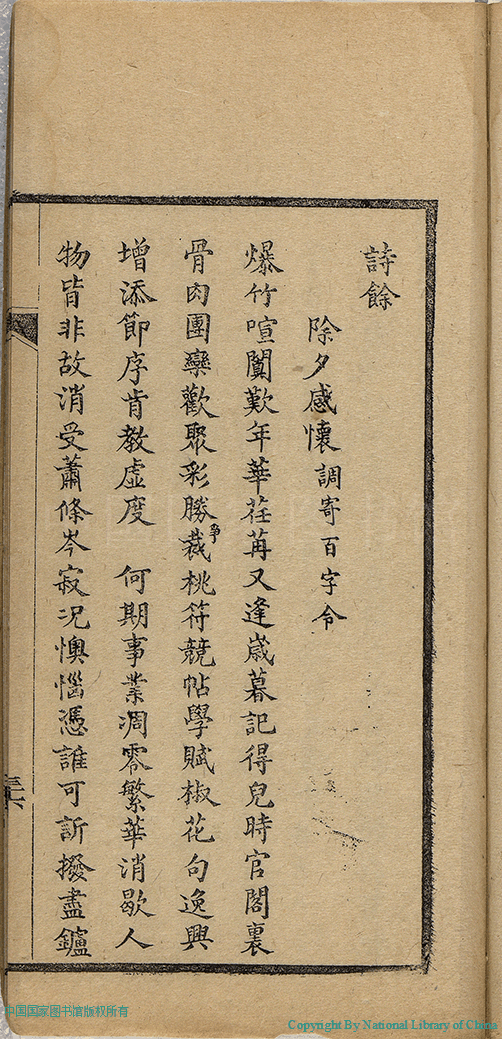 詩餘
除夕感懷調寄百字令
爆竹喧闐歎年華荏苒又逢歲暮記得兒時官閣裏
骨肉團欒歡聚彩勝爭裁桃符競帖學賦椒花句逸興
增添節序肯教虛度　何期事業凋零繁華消歇人
物皆非故消受蕭條岑寂况懊惱憑誰可訴撥盡鑪
三六
中国国家图书馆版权所有
Copyright By National Library of China